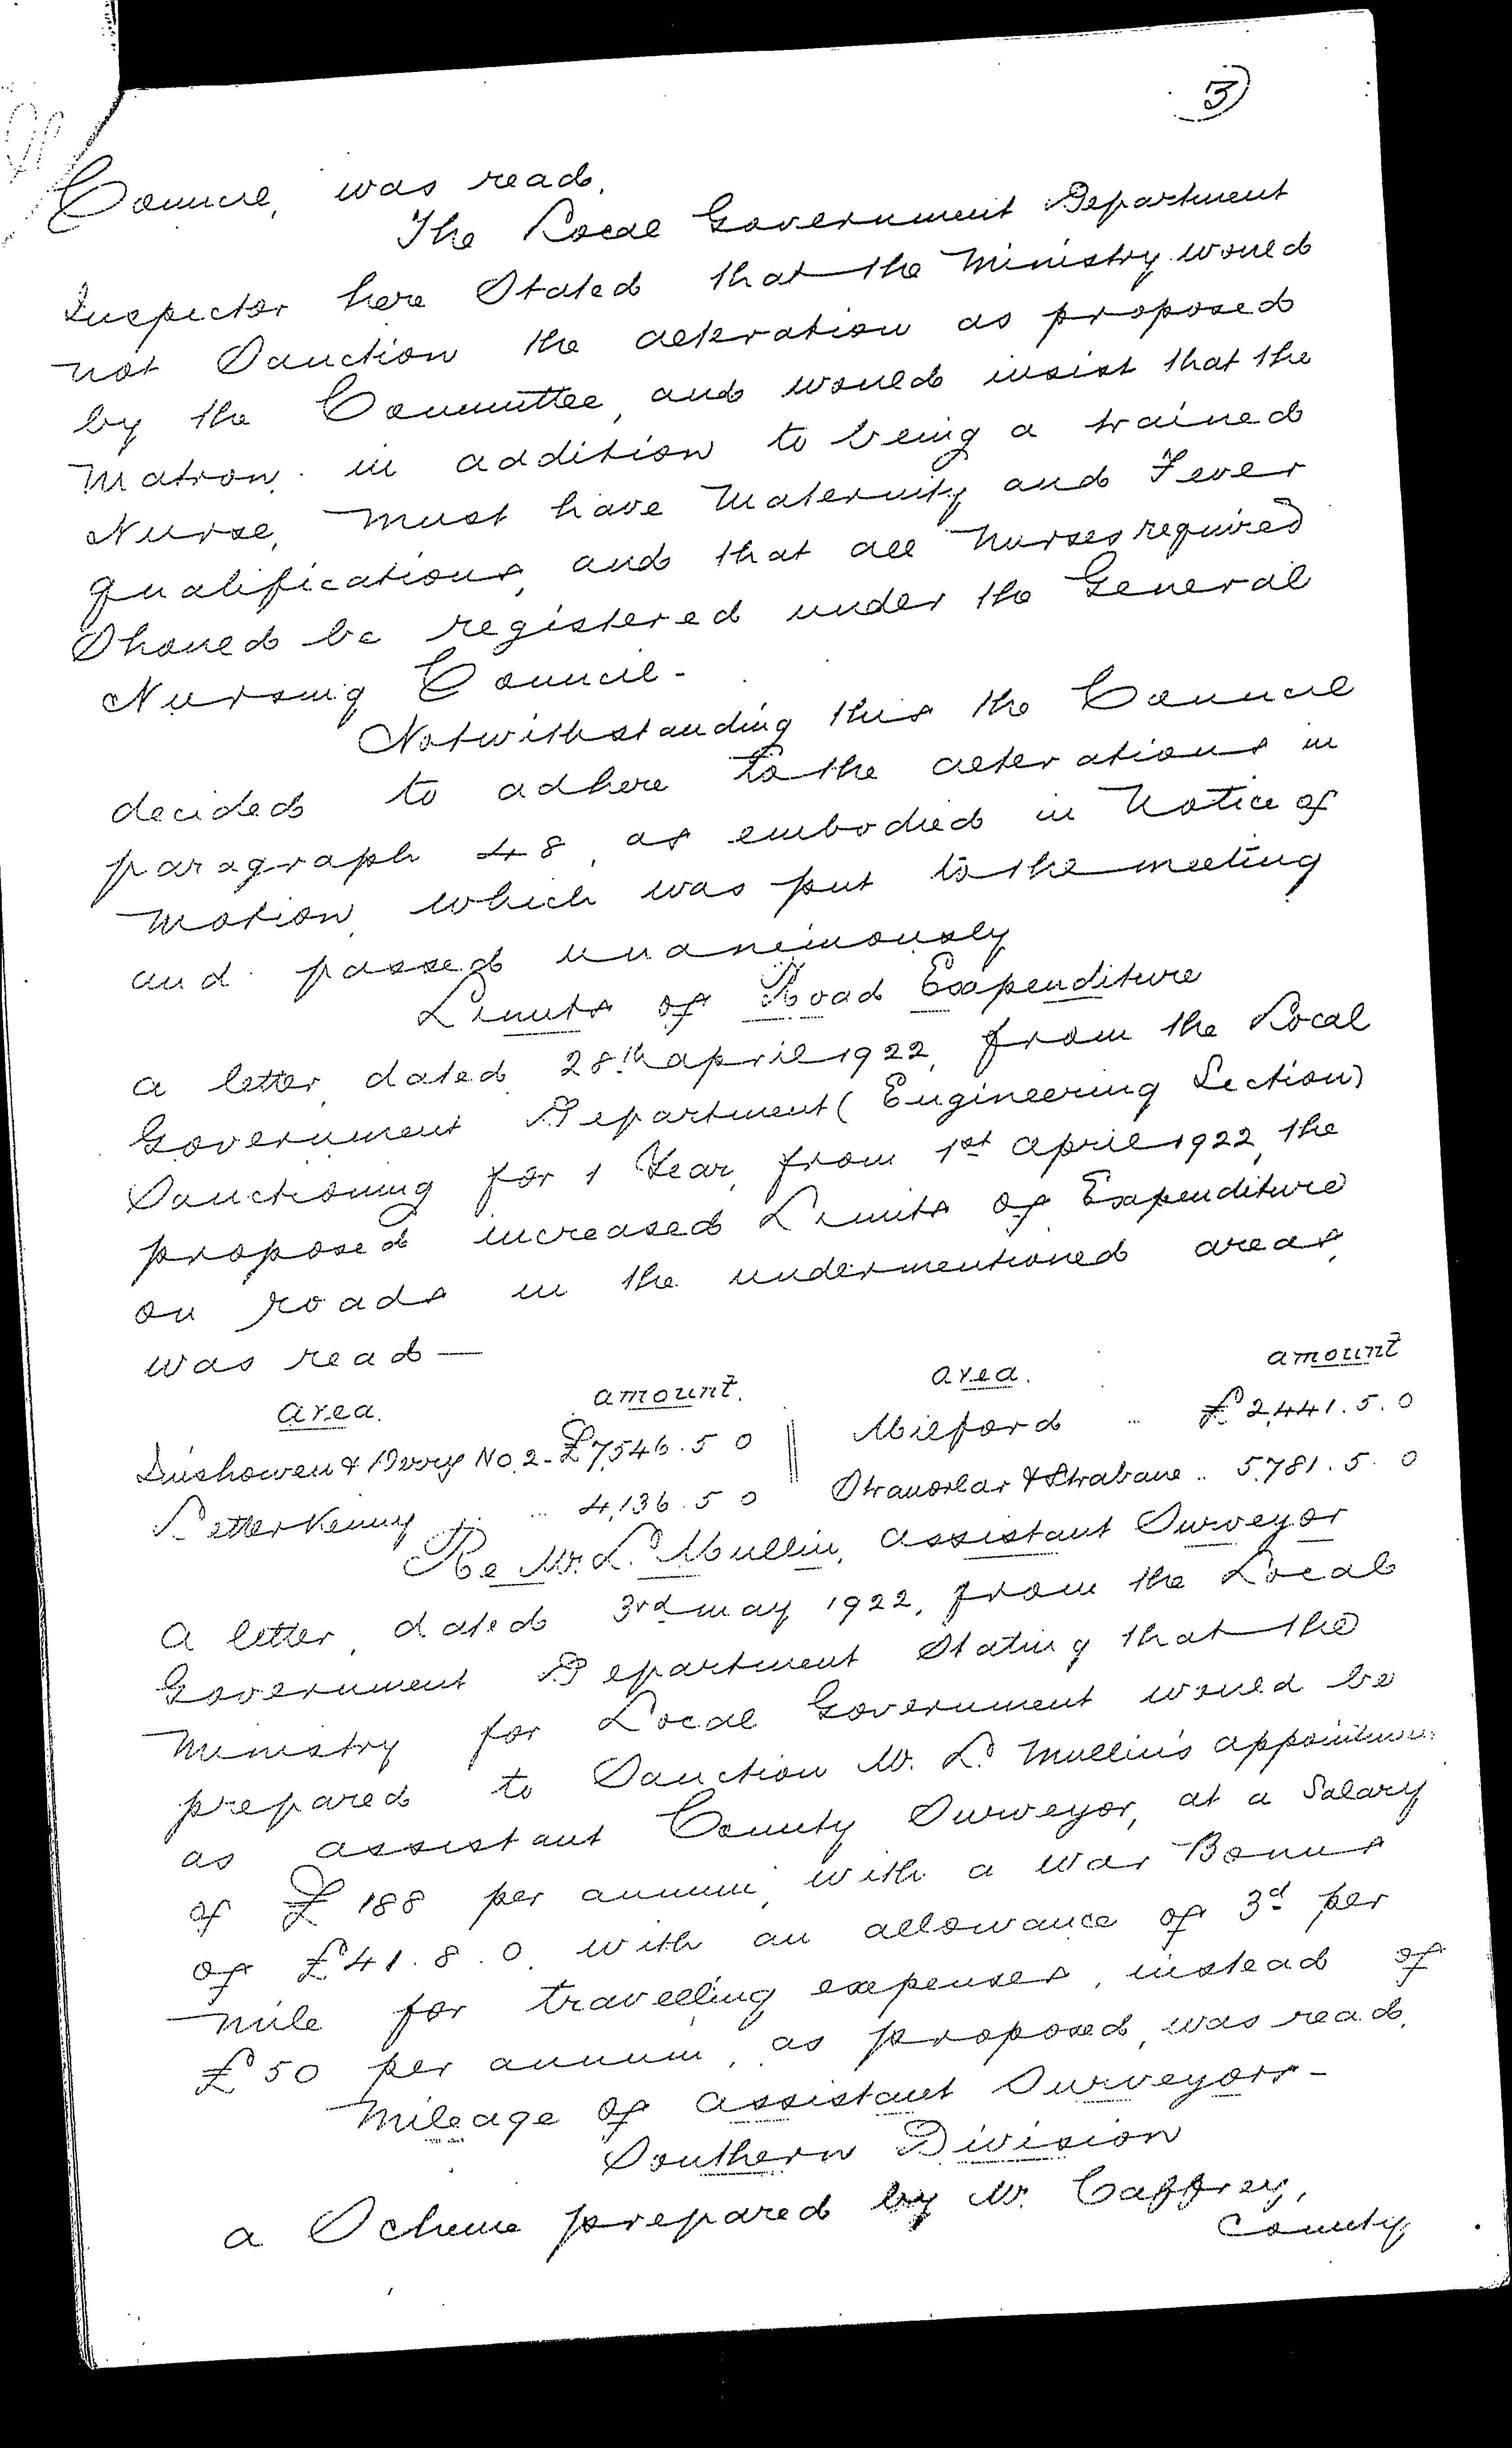 3
Council, was read.
The Local Government Department
Inspector here Stated that the Ministry would
not Sanction the alteration as proposed
by the Committee, and would insist that the
Matron. in addition to being a trained
Nurse, must have Maternity and Fever
qualifications, and that all Nurses required
Should be registered under the General
Nursing Council -
Notwithstanding this the Council
decided to adhere to the alterations in
paragraph 48, as embodied in Notice of
Motion, which was put to the meeting
and passed unanimously
Limits of Road Expenditure
a letter, dated 28th april 1922, from the Local
Government Department (Engineering Section)
Sanctioning for 1 Year, from 1st april 1922, the
proposed increased Limits of Expenditure
on roads in the undermentioned areas,
was read —
area. amount. area. amount
Inishowen & Derry No. 2 - £7,546. 5 0 Milford .. £2,441. 5. 0
Letterkenny .. .. 4,136. 5 0 Stranorlar & Strabane .. 5,781. 5. 0
Re Mr. L. Mullin, assistant Surveyor
a letter, dated 3rd may 1922, from the Local
Government Department Stating that the
Ministry for Local Government would be
prepared to Sanction Mr. L. Mullin's appointment
as assistant County Surveyor, at a Salary
of £188 per annum, with a war Bonus
of £41. 8. 0. with an allowance of 3d per
mile for travelling expenses, instead of
£50 per annum, as proposed, was read.
Mileage of assistant Surveyors -
Southern Division
a Scheme prepared by Mr. Caffrey,
County